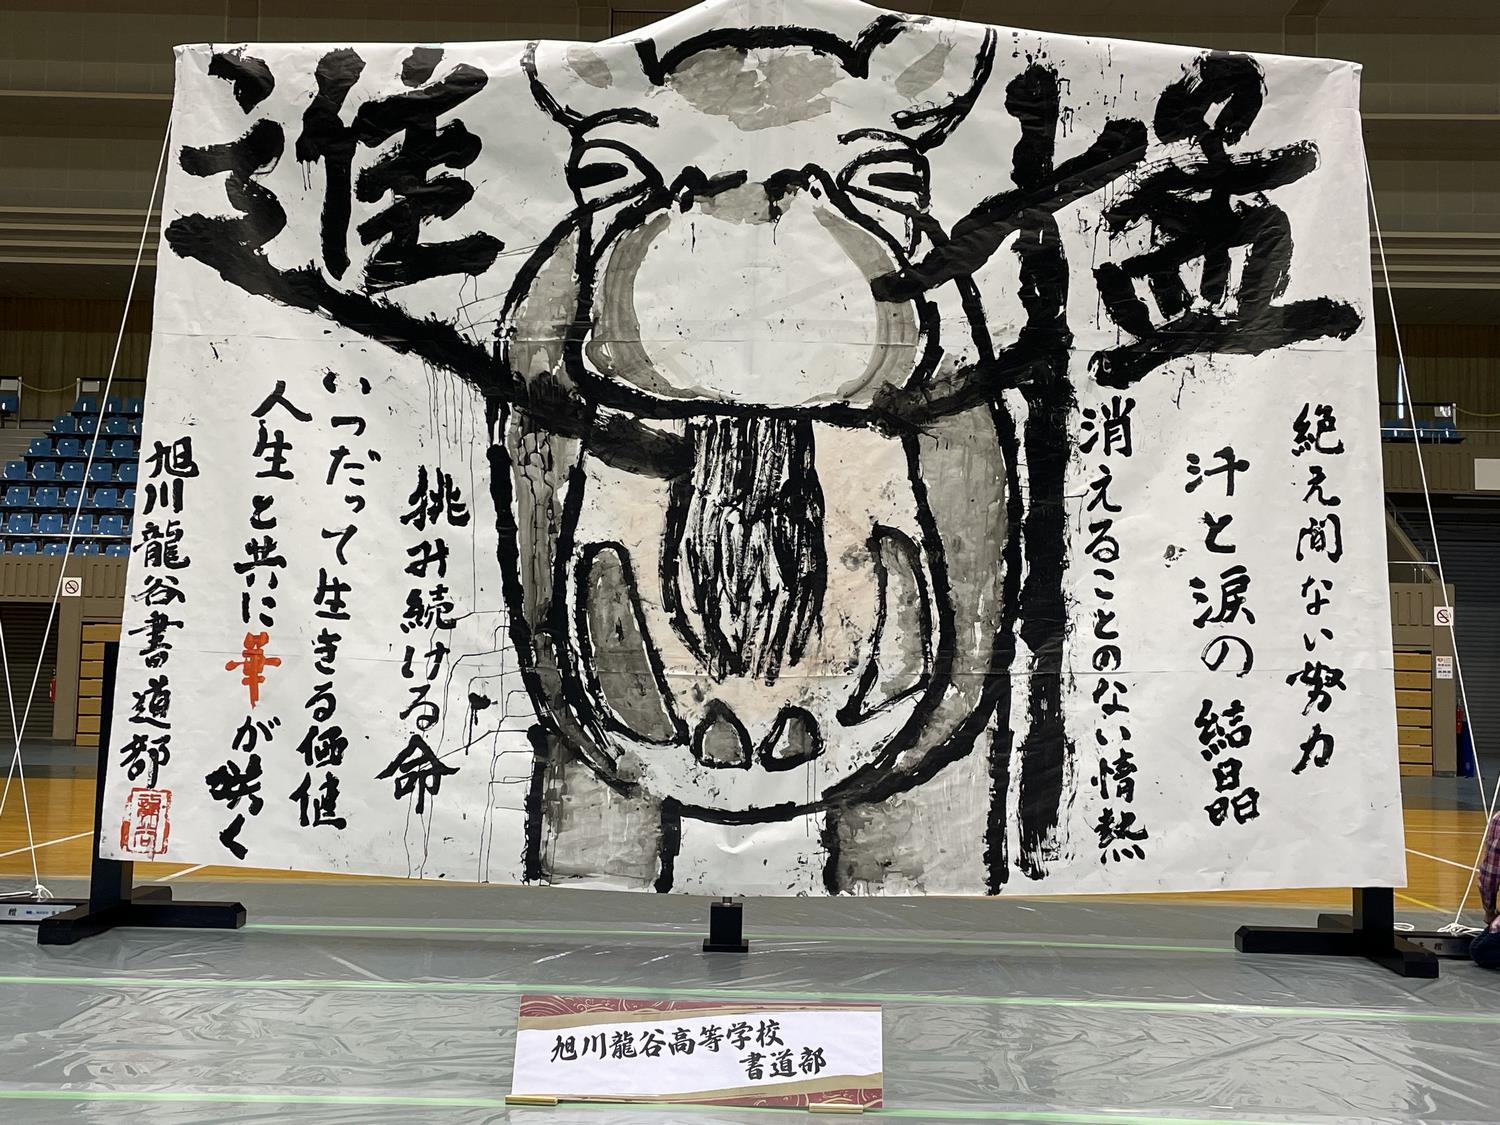 猛進
絶え間ない努力
汗と涙の結晶
消えることのない情熱
挑み続ける命
いつだって生きる価値
人生と共に華が咲く
旭川龍谷書道部
龍谷
旭川龍谷高等学校
書道部